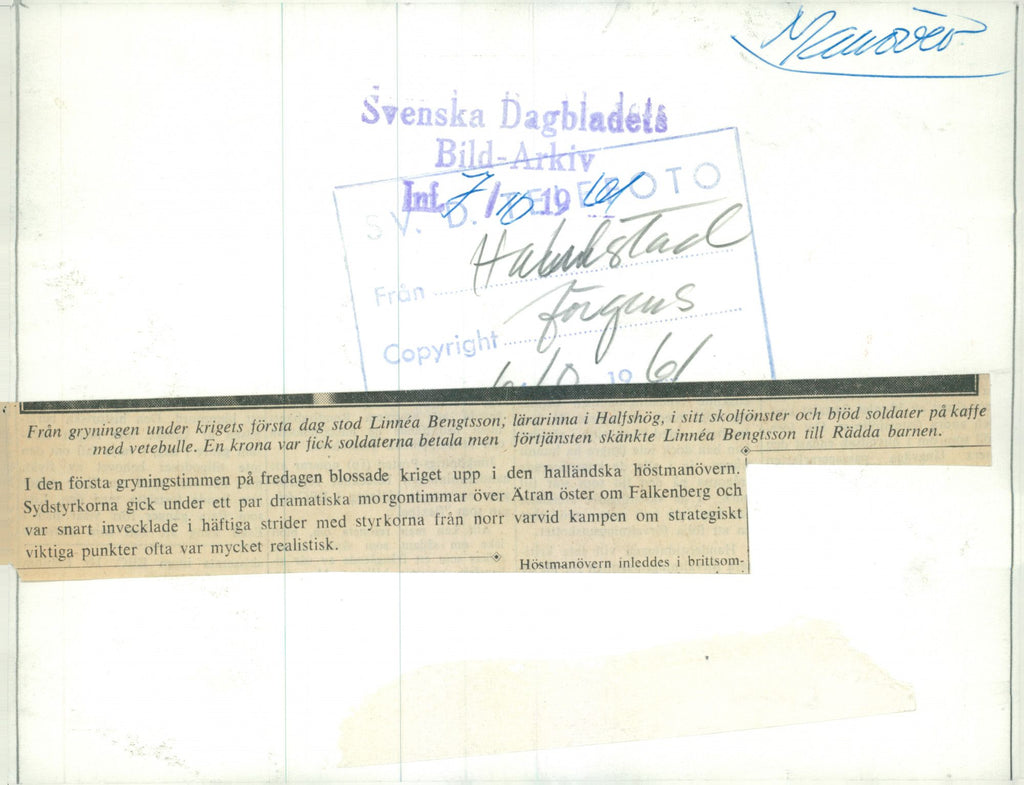 Manöver
Svenska Dagbladets
Bild-Arkiv
Inf. 7/10 19 61
SV. D. TELEFOTO
Från Halmstad
Copyright Jörgens
6/10 19 61
Från gryningen under krigets första dag stod Linnéa Bengtsson, lärarinna i Halfshög, i sitt skolfönster och bjöd soldater på kaffe
med vetebulle. En krona var fick soldaterna betala men förtjänsten skänkte Linnéa Bengtsson till Rädda barnen.
I den första gryningstimmen på fredagen blossade kriget upp i den halländska höstmanövern.
Sydstyrkorna gick under ett par dramatiska morgontimmar över Ätran öster om Falkenberg och
var snart invecklade i häftiga strider med styrkorna från norr varvid kampen om strategiskt
viktiga punkter ofta var mycket realistisk.
Höstmanövern inleddes i brittsom-